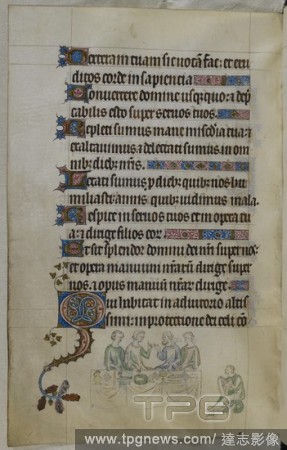 Dexteram tuam sic notā fac: et eru
ditos corde in sapientia
Conuertere domine usq̄quo: et dep̄
cabilis esto super seruos tuos.
Repleti sumus mane miscd̄ia tua: et
exaltauimus et delectati sumus in om
nib; dieb; nr̄is.
Letati sumus p̄ dieb; quib; nos hu
miliasti: annis quib; uidimus mala.
Respice in seruos tuos et in opera tu
a: et dirige filios eor.
Et sit splendor domini dei nr̄i super nos:
et opera manuum nr̄arū dirige super
nos et opus manuū nr̄ar dirige.
Qui habitat in adiutorio altis
simi: in protectione dei celi cō
TPG
www.tpgnews.com/達志影像